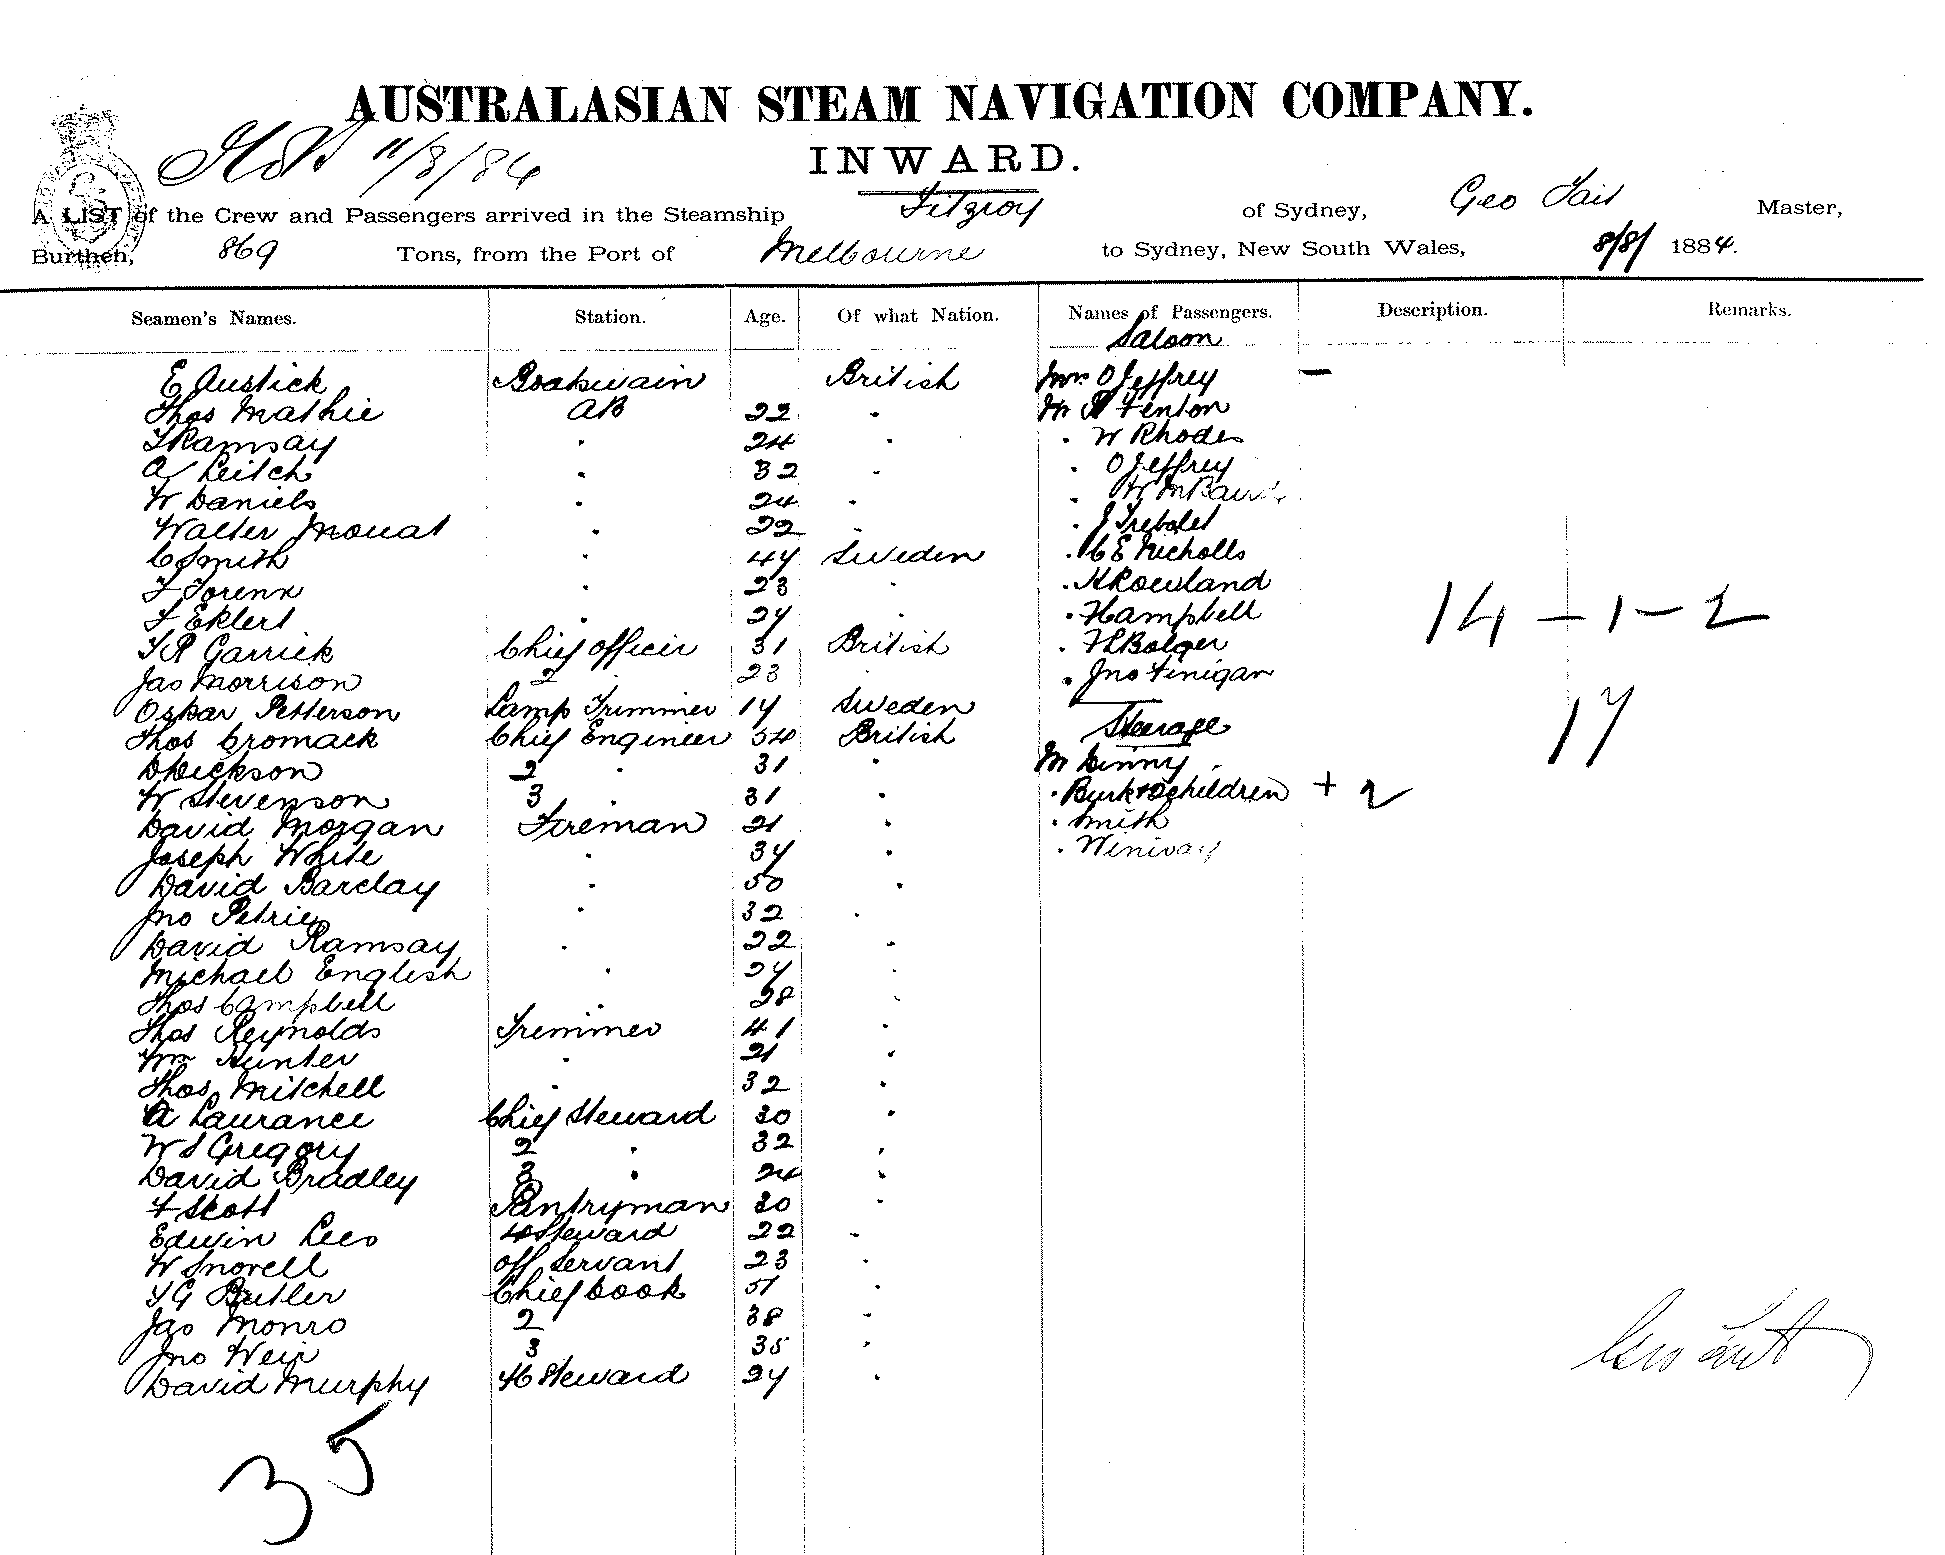 AUSTRALASIAN STEAM NAVIGATION COMPANY.
11/8/84
INWARD.
A LIST of the Crew and Passengers arrived in the Steamship Fitzroy of Sydney, Geo Tait Master,
Burthen, 869 Tons, from the Port of Melbourne to Sydney, New South Wales, 8/8/ 1884.
Seamen's Names. Station. Age. Of what Nation. Names of Passengers. Description. Remarks.
Saloon
E Austick Boatswain British Mrs O Jeffrey —
Thos Mathie AB 22 " Mr R Fenton
T Ramsay " 24 " " W Rhodes
A Leitch " 32 " " O Jeffrey
W Daniels " 24 " " W
Walter Mouat " 22 " " J Trebolet
C Smith " 47 Sweden " C E Nicholls
F Torenx " 23 " " H Rowland
F Eklert " 27 " " Campbell 14 – 1 – 2
T R Garrick Chief Officer 31 British " Bolger
Jas Morrison 2 " 23 " " Jno Finigan
Oskar Petterson Lamp Trimmer 17 Sweden 17
Steerage
Thos Cromack Chief Engineer 54 British
D Dickson 2 " 31 " Mr Dinny
W Stevenson 3 " 31 " " Burk + 2 children + 2
David Morgan Fireman 21 " " Smith
Joseph White " 37 " " Winivay
David Barclay " 50 "
Jno Petrie " 32 "
David Ramsay " 22 "
Michael English " 27 "
Thos Campbell " 28 "
Thos Reynolds Trimmer 41 "
Wm Hunter " 21 "
Thos Mitchell " 32 "
A Laurance Chief Steward 30 "
W S Gregory 2 " 32 "
David Bradley 3 " 24 "
F Scott Pantryman 30 "
Edwin Lees 4 Steward 22 "
W Snovell Off Servant 23 "
T G Butler Chief Cook 51 "
Jas Monro 2 38 "
Jno Weir 3 35 "
David Murphy Steward 27 "
Geo Tait
35